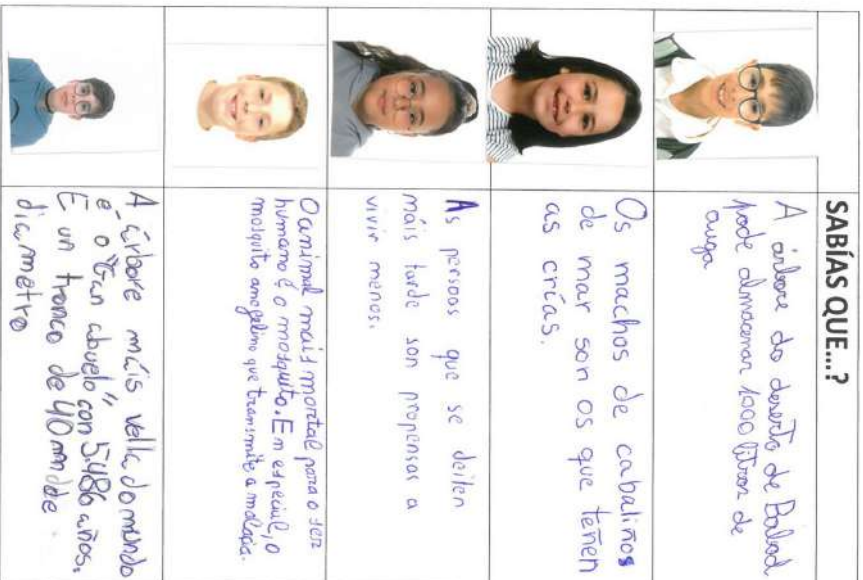 SABÍAS QUE...?
A árbore do deserto de Babad
pode almacenar 1000 litros de
auga
Os machos de cabaliños
de mar son os que teñen
as crías.
As persoas que se deiten
máis tarde son propensas a
vivir menos.
O animal mais mortal para o ser
humano é o mosquito. En especial, o
mosquito que transmite a
A árbore máis vella do mundo
é o "Gan abuelo" con 5.486 años.
É un tronco de 40 mn dde
diametro